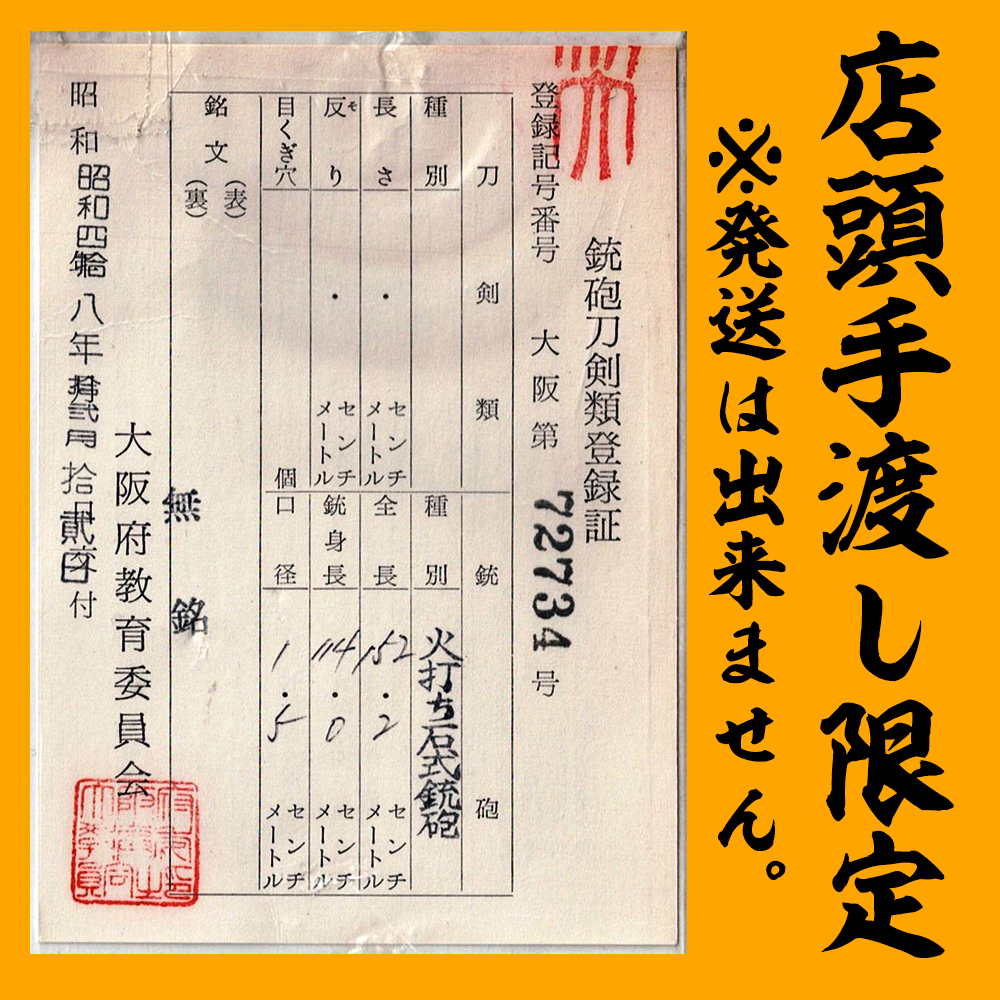 店頭手渡し限定
※発送は出来ません。
銃砲刀剣類登録証
登録記号番号 大阪第 72734 号
刀剣類
銃砲
種別
長さ ・ センチメートル
反り ・ センチメートル
目くぎ穴 個
種別 火打ち石式銃砲
全長 152・2 センチメートル
銃身長 114・0 センチメートル
口径 1・5 センチメートル
銘文 (表)
(裏)
無銘
大阪府教育委員会
昭和 昭和四拾八年拾弐月拾貳日 付